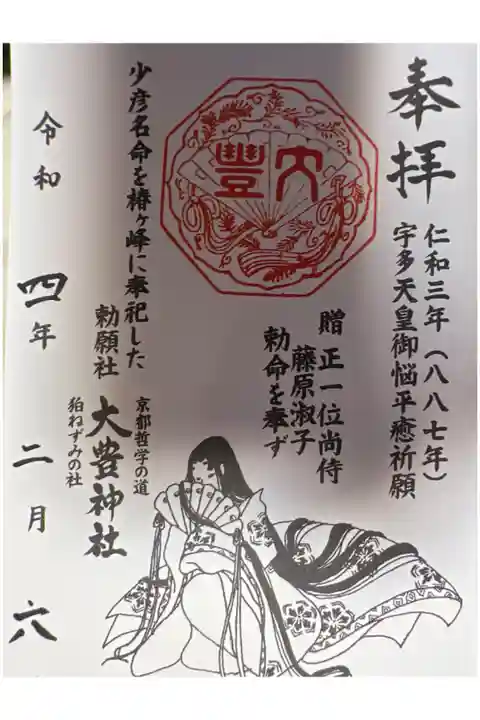 奉拝
仁和三年（八八七年）
宇多天皇御悩平癒祈願
大豐
贈 正一位尚侍
藤原淑子
勅命を奉ず
少彦名命を椿ヶ峰に奉祀した
勅願社
京都哲学の道
狛ねずみの社
大豊神社
令和 四年 二月 六